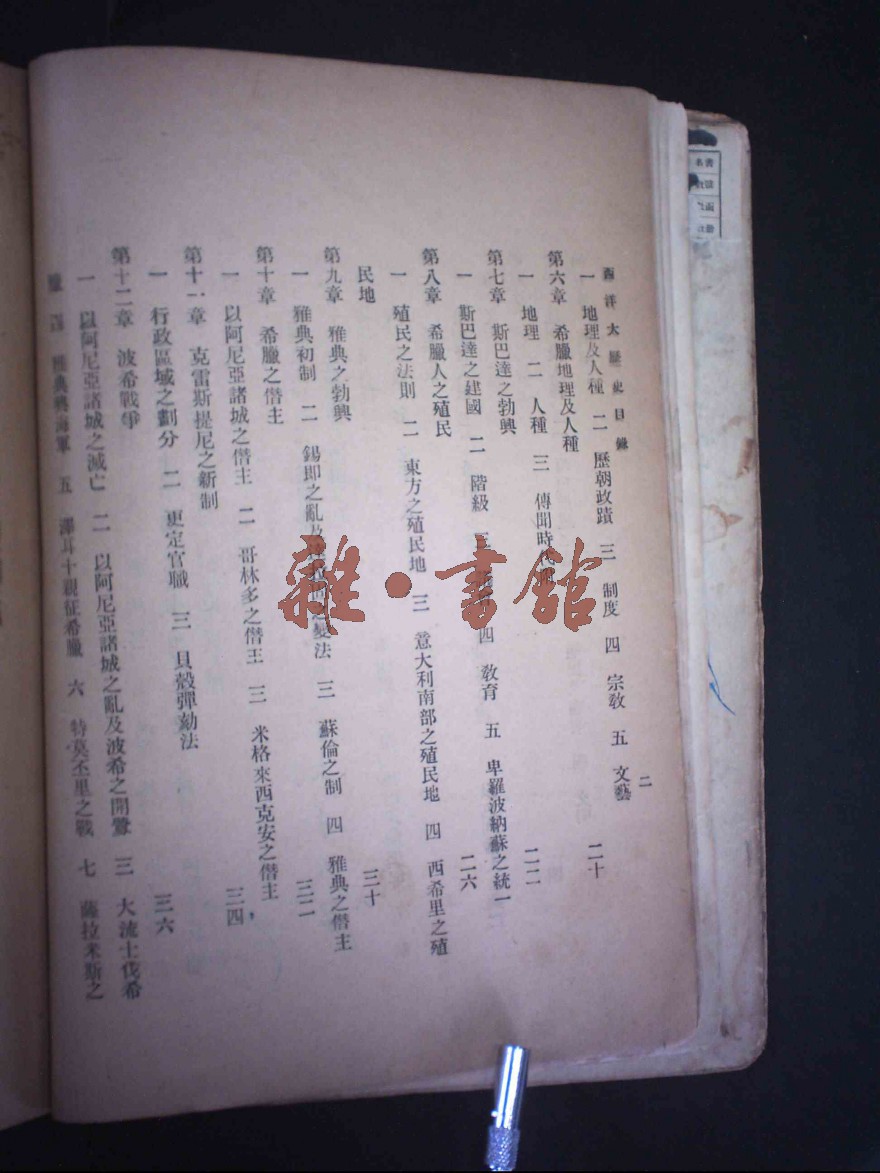 西洋大歷史目錄
二
一 地理及人種 二 歷朝政蹟 三 制度 四 宗教 五 文藝 二十
第六章 希臘地理及人種
一 地理 二 人種 三 傳聞時代 二二
第七章 斯巴達之勃興
一 斯巴達之建國 二 階級 三 四 教育 五 卑羅波納蘇之統一 二六
第八章 希臘人之殖民
一 殖民之法則 二 東方之殖民地 三 意大利南部之殖民地 四 西希里之殖
民地 三十
第九章 雅典之勃興
一 雅典初制 二 錫即之亂及 之變法 三 蘇倫之制 四 雅典之僭主 三二
第十章 希臘之僭主
一 以阿尼亞諸城之僭主 二 哥林多之僭王 三 米格來西克安之僭主 三四
第十一章 克雷斯提尼之新制
一 行政區域之劃分 二 更定官職 三 貝殼彈劾法 三六
第十二章 波希戰爭
一 以阿尼亞諸城之滅亡 二 以阿尼亞諸城之亂及波希之開釁 三 大流士伐希
臘 四 雅典興海軍 五 澤耳士親征希臘 六 特莫丕里之戰 七 薩拉米斯之
雜·書館